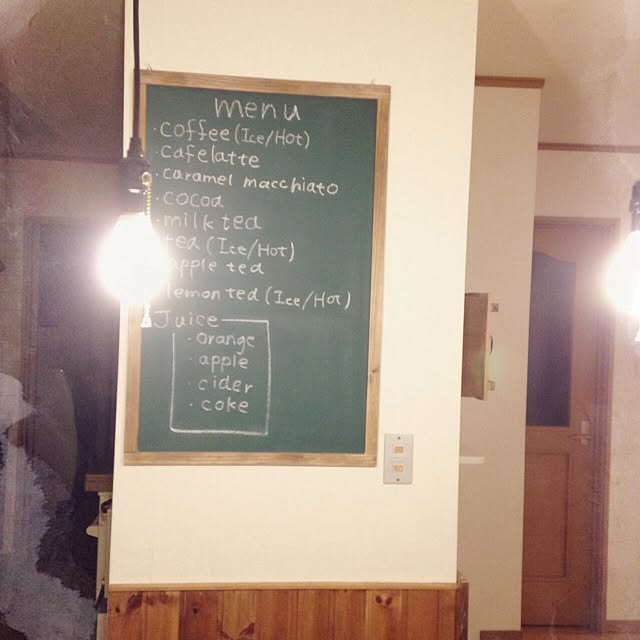 menu
・coffee (Ice/Hot)
・cafelatte
・caramel macchiato
・cocoa
・milk tea
tea (Ice/Hot)
apple tea
lemon tea (Ice/Hot)
Juice
・orange
・apple
・cider
・coke